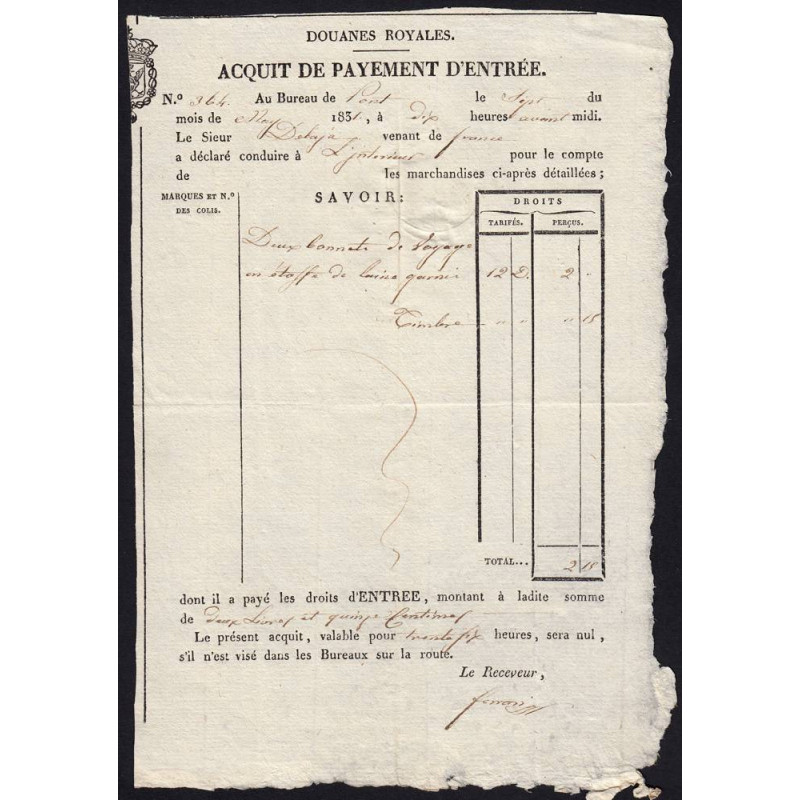 DOUANES ROYALES.
ACQUIT DE PAYEMENT D'ENTRÉE.
N.º 364. Au Bureau de Pont le Sept du
mois de May 1831, à dix heures avant midi.
Le Sieur Delaja venant de france
a déclaré conduire à L'jnterieur pour le compte
de les marchandises ci-après détaillées ;
MARQUES ET N.ºˢ
DES COLIS.
SAVOIR :
DROITS
TARIFÉS. PERÇUS.
Deux bonnets de Voyage
en étoffe de laine garni 12 D. 2 "
Timbre " " " 15
TOTAL... 2 15
dont il a payé les droits d'ENTREE, montant à ladite somme
de deux Livres et quinze Centimes
Le présent acquit, valable pour trente six heures, sera nul,
s'il n'est visé dans les Bureaux sur la route.
Le Receveur,